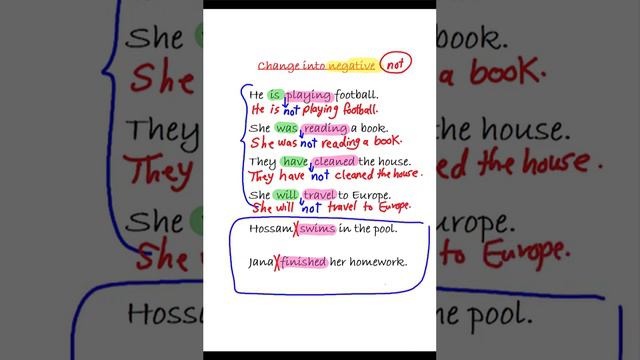 Change into negative not
He is playing football.
He is not playing football.
She was reading a book.
She was not reading a book.
They have cleaned the house.
They have not cleaned the house.
She will travel to Europe.
She will not travel to Europe.
Hossam swims in the pool.
Jana finished her homework.